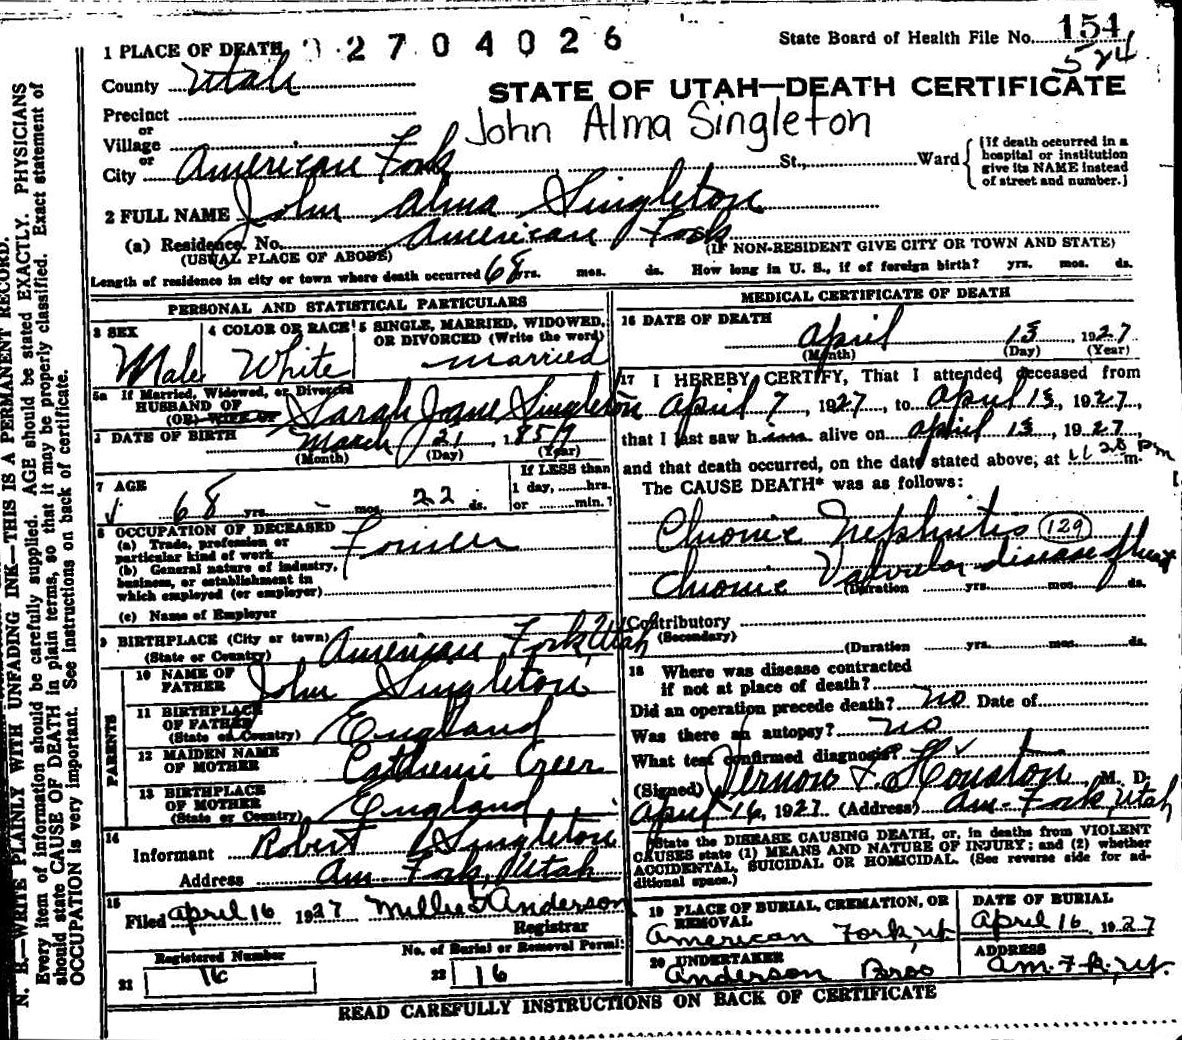 1 PLACE OF DEATH 2704026
State Board of Health File No. 154
524
County Utah
STATE OF UTAH—DEATH CERTIFICATE
Precinct
or
John Alma Singleton
Village
or
City American Fork St., Ward
{If death occurred in a hospital or institution give its NAME instead of street and number.}
2 FULL NAME John Alma Singleton
(a) Residence. No. American Fork
(USUAL PLACE OF ABODE) (IF NON-RESIDENT GIVE CITY OR TOWN AND STATE)
Length of residence in city or town where death occurred 68 yrs. mos. ds. How long in U. S., if of foreign birth? yrs. mos. ds.
PERSONAL AND STATISTICAL PARTICULARS
3 SEX Male
4 COLOR OR RACE White
5 SINGLE, MARRIED, WIDOWED, OR DIVORCED (Write the word) married
5a If Married, Widowed, or Divorced
HUSBAND OF
(OR) WIFE OF Sarah Jane Singleton
DATE OF BIRTH March 21, 1859
(Month) (Day) (Year)
7 AGE 68 yrs. - mos. 22 ds.
If LESS than 1 day, hrs. or min.?
8 OCCUPATION OF DECEASED
(a) Trade, profession or particular kind of work
(b) General nature of industry, business, or establishment in which employed (or employer)
(c) Name of Employer
9 BIRTHPLACE (City or town) American Fork, Utah
(State or Country)
PARENTS
10 NAME OF FATHER John Singleton
11 BIRTHPLACE OF FATHER England
(State or Country)
12 MAIDEN NAME OF MOTHER Catherine Creer
13 BIRTHPLACE OF MOTHER England
(State or Country)
14 Informant Robert Singleton
Address Am. Fork, Utah
15 Filed April 16 1927 Millie Anderson
Registrar
Registered Number
21 16
No. of Burial or Removal Permit
22 16
MEDICAL CERTIFICATE OF DEATH
16 DATE OF DEATH April 13, 1927
(Month) (Day) (Year)
17 I HEREBY CERTIFY, That I attended deceased from
April 7, 1927, to April 13, 1927,
that I last saw h alive on April 13, 1927,
and that death occurred, on the date stated above, at 11 20 pm m.
The CAUSE DEATH* was as follows:
Chronic Nephritis 129
Chronic Valvular disease of heart
(Duration yrs. mos. ds.
Contributory
(Secondary)
(Duration yrs. mos. ds.
18 Where was disease contracted
if not at place of death?
Did an operation precede death? no Date of
Was there an autopsy? no
What test confirmed diagnosis?
(Signed) Vernow F. Houston, M. D.
April 16, 1927 (Address) Am. Fork, Utah
*State the DISEASE CAUSING DEATH, or, in deaths from VIOLENT
CAUSES state (1) MEANS AND NATURE OF INJURY; and (2) whether
ACCIDENTAL, SUICIDAL OR HOMICIDAL. (See reverse side for ad-
ditional space.)
19 PLACE OF BURIAL, CREMATION, OR REMOVAL
American Fork, Ut
DATE OF BURIAL
April 16 1927
20 UNDERTAKER
Anderson Bros
ADDRESS
Am. Fk, Ut.
READ CAREFULLY INSTRUCTIONS ON BACK OF CERTIFICATE
N. B.—WRITE PLAINLY WITH UNFADING INK—THIS IS A PERMANENT RECORD.
Every item of information should be carefully supplied. AGE should be stated EXACTLY. PHYSICIANS
should state CAUSE OF DEATH in plain terms, so that it may be properly classified. Exact statement of
OCCUPATION is very important. See instructions on back of certificate.